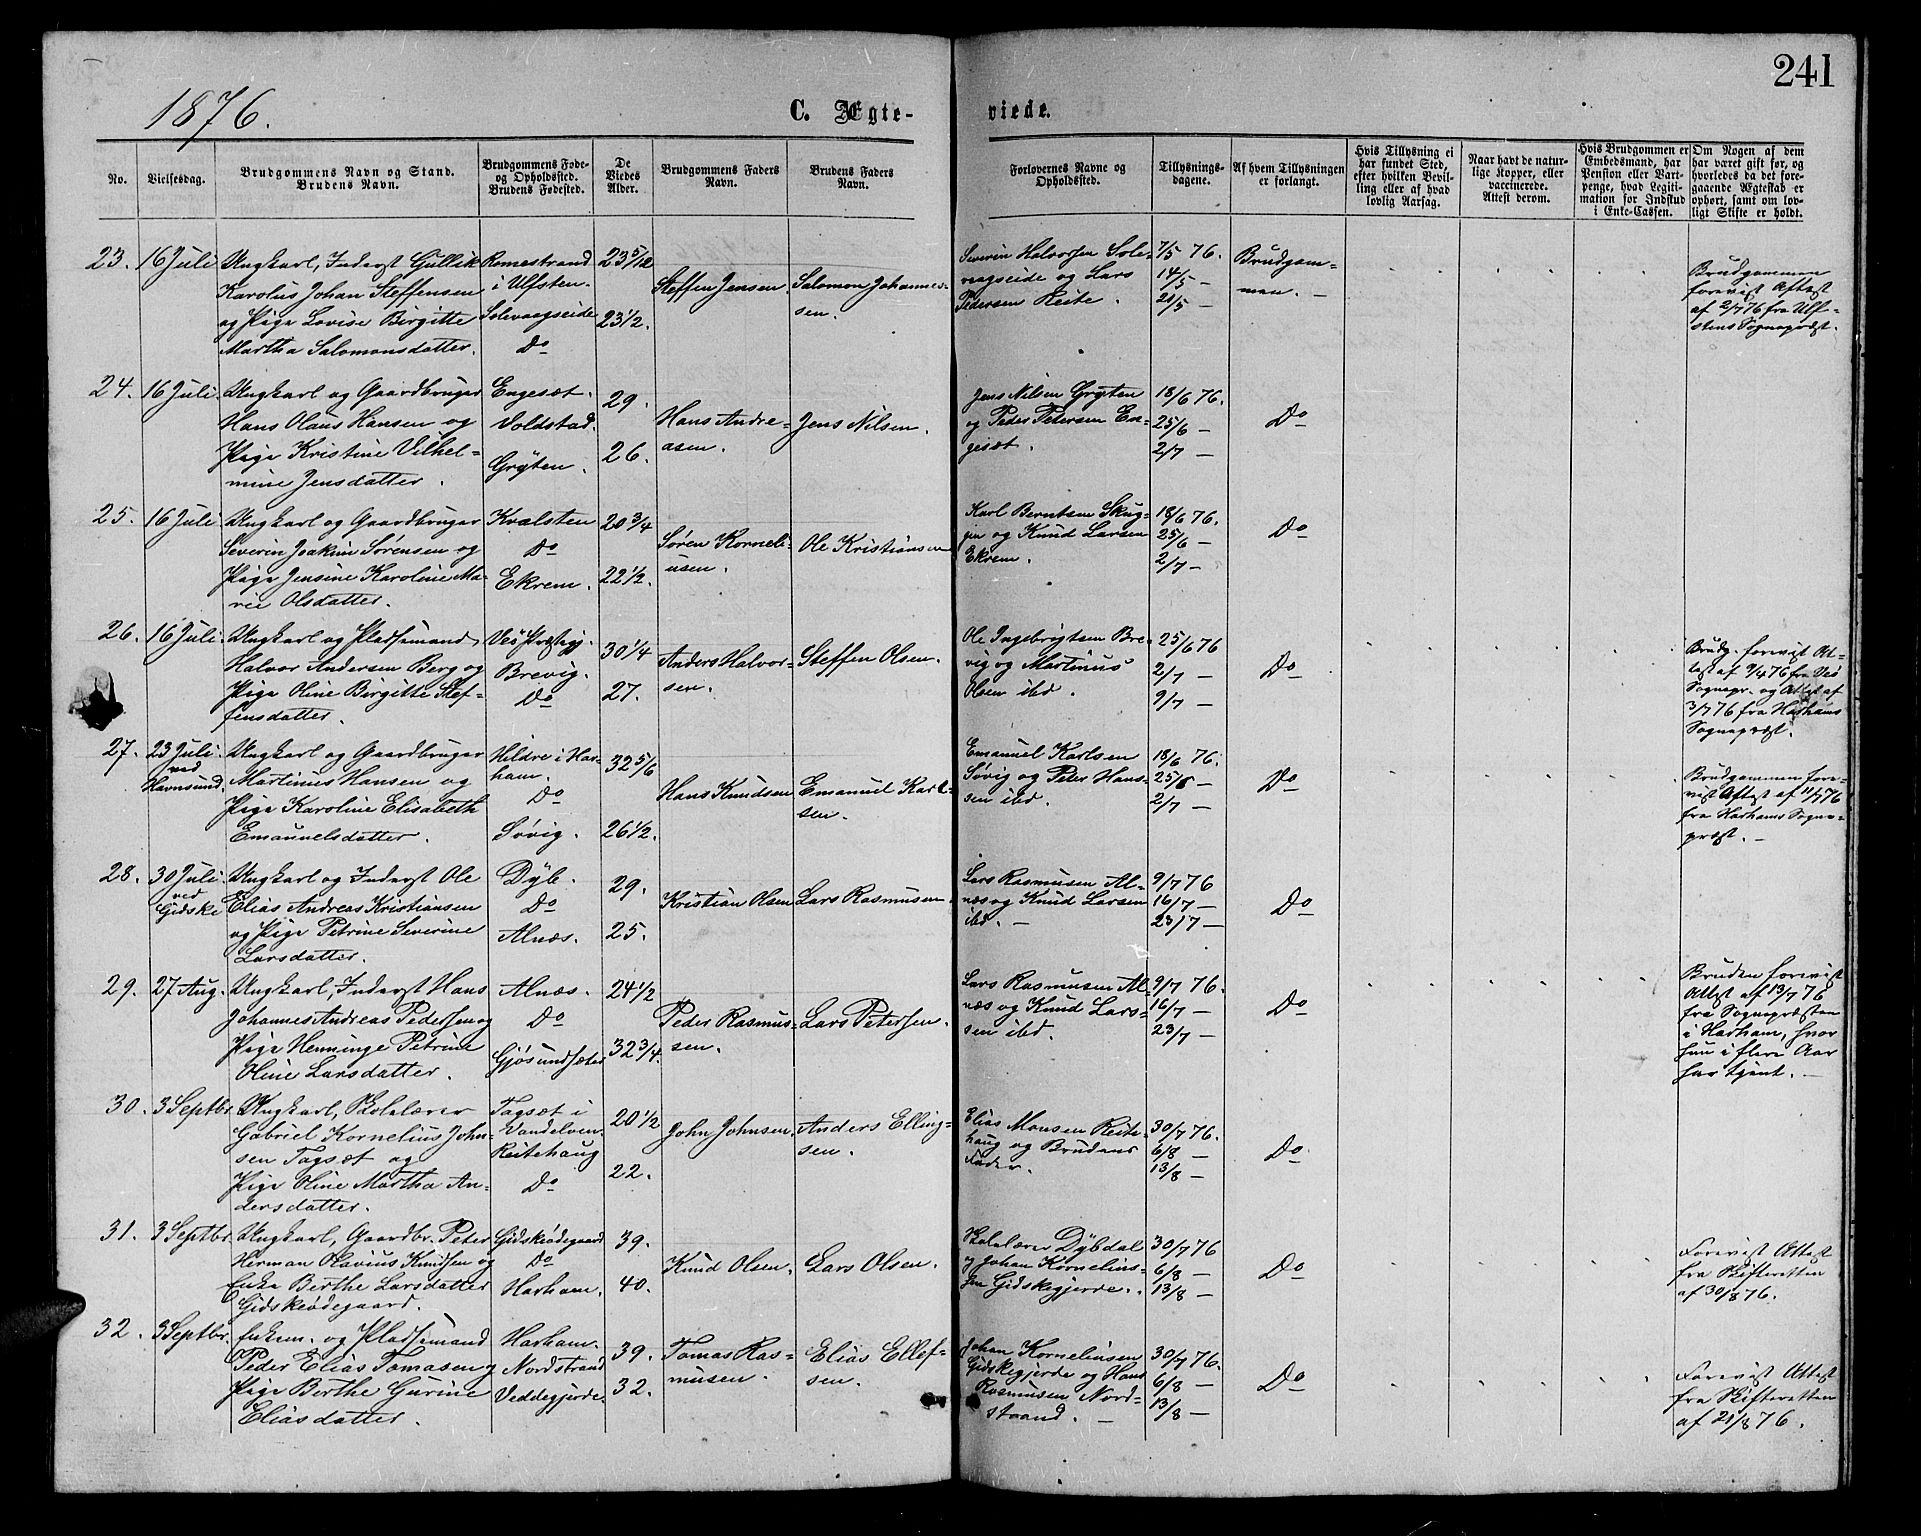 241
1876.
C. Ægte-
viede.
No.
Vielsesdag.
Brudgommens Navn og Stand.
Brudens Navn.
Brudgommens Føde-
og Opholdssted.
Brudens Fødested.
De
Viedes
Alder.
Brudgommens Faders
Navn.
Brudens Faders
Navn.
Forlovernes Navne og
Opholdssted.
Tillysnings-
dagene.
Af hvem Tillysningen
er forlangt.
Hvis Tillysning ei
har fundet Sted,
efter hvilken Bevil-
ling eller af hvad
lovlig Aarsag.
Naar havt de natur-
lige Kopper, eller
vaccinerede.
Attest derom.
Hvis Brudgommen er
Embedsmand, har
Pension eller Vart-
penge, hvad Legiti-
mation for Indskud
i Enke-Cassen.
Om Nogen af dem
har været gift før, og
hvorledes da det fore-
gaaende Ægteskab er
ophørt, samt om lov-
ligt Skifte er holdt.
23.
16 Juli
Ungkarl, Inderst Gullik
Karolus Johan Steffensen
og Pige Lovise Birgitte
Martha Salomonsdatter.
Romestrand
i Ulfsten.
Solevaagseide
Do
23 5/12
23 1/2.
Steffen Jensen.
Salomon Johannes-
sen.
Severin Halvorsen Sole-
vaagseide og Lars
Pedersen Reite.
7/5 76.
14/5 —
21/5 —
Brudgom-
men. —
Brudgommen
forevist Attest
af 2/7 76 fra Ulf-
stens Sognepræst.
24.
16 Juli.
Ungkarl og Gaardbruger
Hans Olaus Hansen og
Pige Kristine Vilhel-
mine Jensdatter.
Engesæt.
Voldstad.
Gryten.
29.
26.
Hans Andre-
asen.
Jens Nilsen.
Jens Nilsen Gryten
og Peder Petersen En-
gesæt.
18/6 76.
25/6 —
2/7 —
Do
25.
16 Juli
Ungkarl og Gaardbruger
Severin Joakim Sørensen og
Pige Jensine Karoline Ma-
rie Olsdatter.
Kvalsten
Do
Ekrem.
20 3/4
22 1/2.
Søren Korneli-
usen.
Ole Kristiansen
Karl Berntsen Skug-
jen og Knud Larsen
Ekrem.
18/6 76.
25/6 —
2/7 —
Do
26.
16 Juli.
Ungkarl og Pladsemand
Halvor Andersen Berg og
Pige Oline Birgitte Stef-
fensdatter.
Vei Præstegj.
Brevig.
Do
30 1/4
27.
Anders Halvor-
sen.
Steffen Olsen.
Ole Ingebrigtsen Bre-
vig og Martinus
Olsen ibd.
25/6 76
2/7 —
9/7 —
Do
Brudg. forevist At-
test af 9/4 76 fra Vei
Sognepr. og Attest af
3/7 76 fra Harhams
Sognepræst.
27.
23 Juli
ved
Havnsund.
Ungkarl og Gaardbruger
Martinus Hansen og
Pige Karoline Elisabeth
Emanuelsdatter.
Hildre i Har-
ham.
Do
Søvig.
32 5/6
26 1/2.
Hans Knudsen
Emanuel Karl-
sen.
Emanuel Karlsen
Søvig og Peter Hans-
sen ibd.
18/6 76.
25/6 —
2/7 —
Do
Brudgommen fore-
vist Attest af 11/7 76
fra Harhams Sogne-
præst. —
28.
30 Juli
ved
Gidske
Ungkarl og Inderst Ole
Elias Andreas Kristiansen
og Pige Petrine Severine
Larsdatter.
Dyb.
Do
Alnæs.
29.
25.
Kristian Olsen
Lars Rasmusen.
Lars Rasmusen Al-
næs og Knud Larsen
ibd. —
9/7 76
16/7 —
23/7 —
Do
29.
27 Aug.
Ungkarl, Inderst Hans
Johannes Andreas Pedersen og
Pige Henninge Petrine
Oline Larsdatter.
Alnæs.
Do
Gjøsundsæter
24 1/2
32 3/4.
Peder Rasmus-
sen.
Lars Petersen.
Lars Rasmusen Al-
næs og Knud Lars-
sen ibd.
9/7 76.
16/7 —
23/7 —
Do
Bruden forevist
Attest af 13/7 76
fra Sognepræsten
i Harham, hvor
hun i flere Aar
har tjent. —
30.
3 Septbr.
Ungkarl, Skolelærer
Gabriel Kornelius John-
sen Tagsæt og
Pige Oline Martha An-
dersdatter.
Tagsæt i
Vandelven.
Reitehaug
Do
20 1/2
22.
John Johnsen.
Anders Elling-
sen.
Elias Monsen Reite-
haug og Brudens
Fader.
30/7 76.
6/8 —
13/8 —
Do
31.
3 Septbr.
Ungkarl, Gaardbr. Peter
Herman Olavius Knudsen og
Enke Berthe Larsdatter
Gidskeødegaard.
Gidskeødegaard
Do
Harham.
39.
40.
Knud Olsen.
Lars Olsen.
Skolelærer Dybdal
og Johan Kornelius-
sen Gidskegjerde.
30/7 76
6/8 —
13/8 —
Do
Forevist Attest
fra Skifteretten
af 30/8 76.
32.
3 Septbr.
Enkem. og Pladsemand
Peder Elias Tomasen og
Pige Berthe Gurine
Eliasdatter.
Harham.
Nordstrand
Veddegjerde.
39.
32.
Tomas Ras-
musen.
Elias Ellef-
sen.
Johan Korneliusen
Gidskegjerde og Hans
Rasmusen Nord-
strand. —
30/7 76.
6/8 —
13/8 —
Do
Forevist Attest
fra Skifteretten
af 21/8 76.